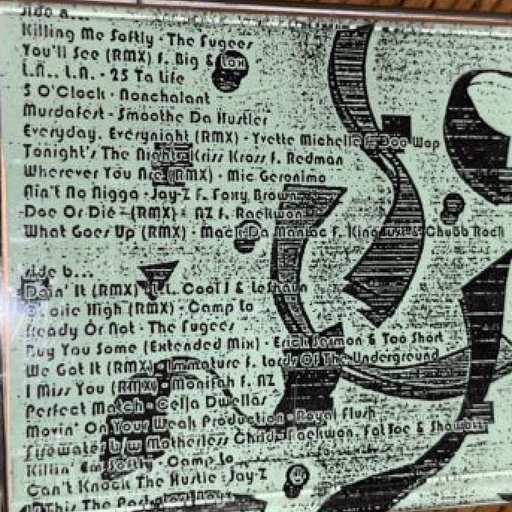 side a...
Killing Me Softly - The Fugees
You'll See (RMX) f. Big & Lox
L.A., L.A. - 25 Ta Life
5 O'Clock - Nonchalant
Murdafest - Smoothe Da Hustler
Everyday, Everynight (RMX) - Yvette Michelle f. Doo Wop
Tonight's The Night - Kriss Kross f. Redman
Wherever You Are (RMX) - Mic Geronimo
Ain't No Nigga - Jay-Z F. Foxy Brown
Doe Or Die - (RMX) - AZ f. Raekwon
What Goes Up (RMX) - Mack Da Maniac f. Kingjust & Chubb Rock
side b...
Doin' It (RMX) - L.L. Cool J & LeShaun
High (RMX) - Camp Lo
Ready Or Not - The Fugees
Buy You Some (Extended Mix) - Erick Sermon & Too Short
We Got It (RMX) - Immature f. Lords Of The Underground
I Miss You (RMX) - Monifah f. AZ
Perfect Match - Cella Dwellas
Movin' On Your Weak Production - Royal Flush
Firewater b/w Motherless Child - Raekwon, Fat Joe &
Killin' Em Softly - Camp Lo
Can't Knock The Hustle - Jay-Z
This The